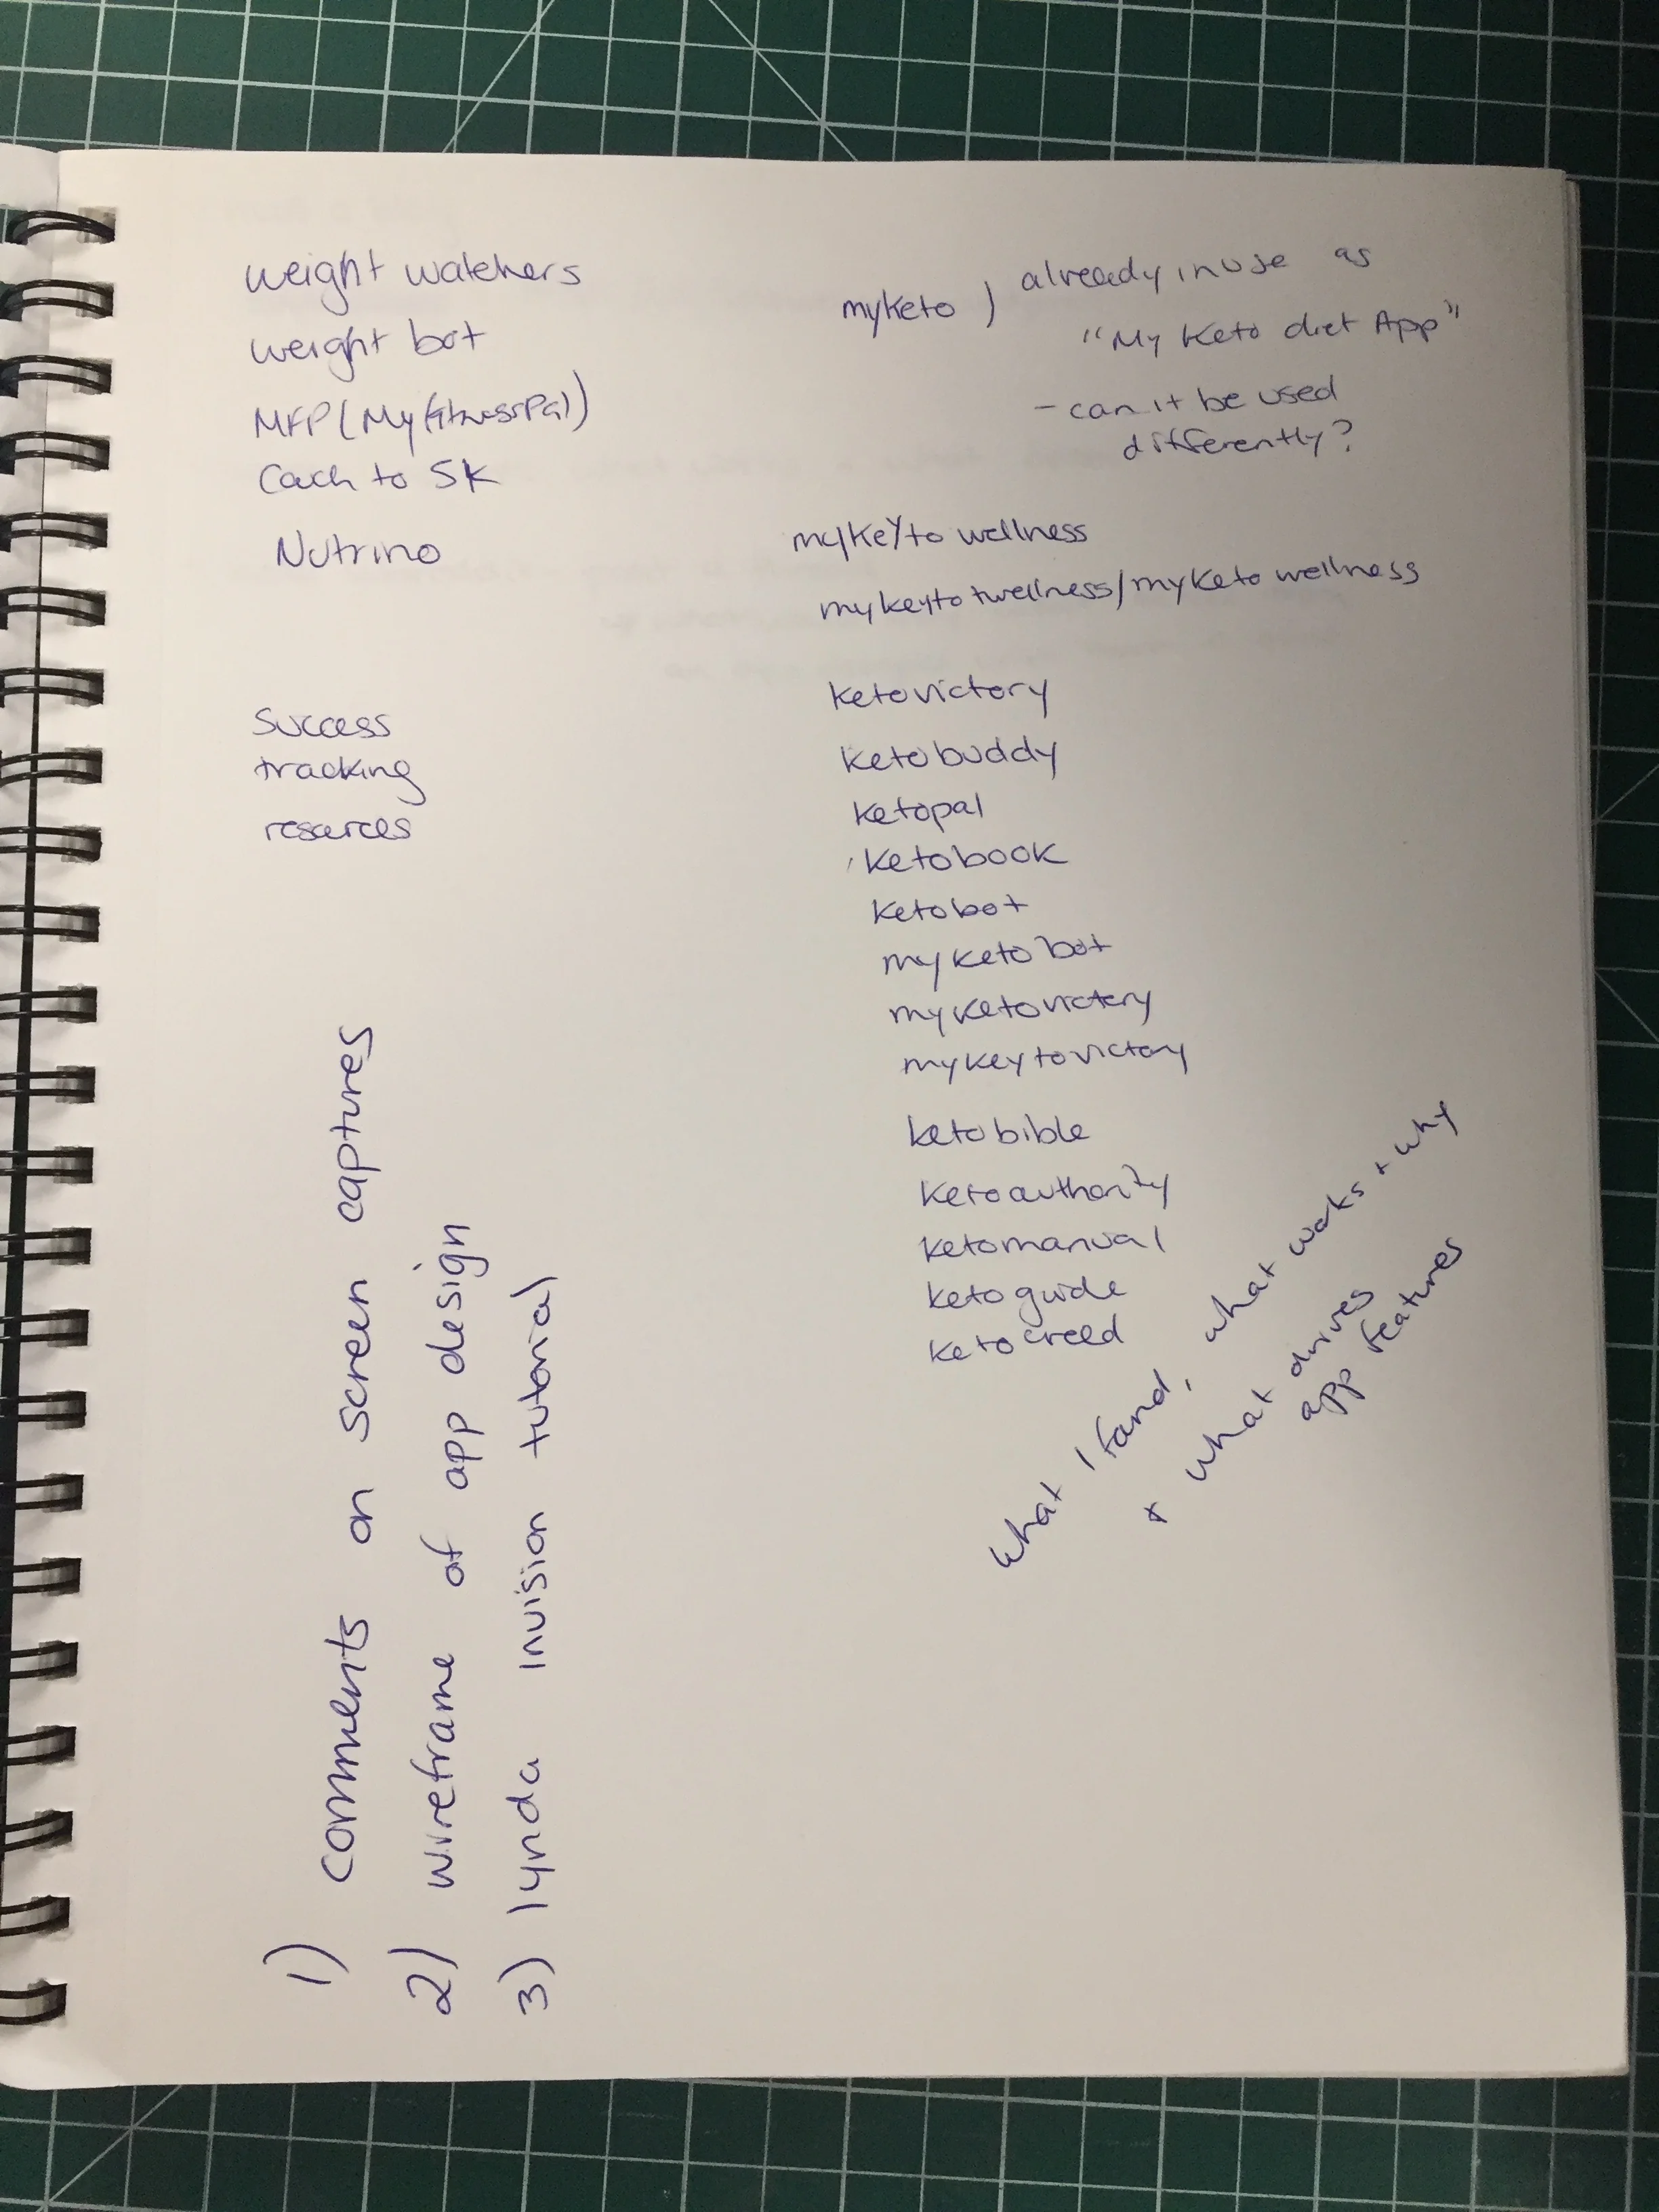 weight watchers
weight bot
MFP (MyfitnessPal)
Coach to 5K
Nutrino
success
tracking
resources
myketo ) already in use as
"My Keto diet App"
- can it be used
differently?
my/keY/to wellness
mykeyto twellness/myketo wellness
ketovictory
ketobuddy
ketopal
ketobook
ketobot
myketobot
myketovictory
mykeytovictory
ketobible
ketoauthority
ketomanual
ketoguide
ketocreed
what I found, what works + why
+ what drives
app features
1) comments on screen captures
2) wireframe of app design
3) lynda invision tutorial